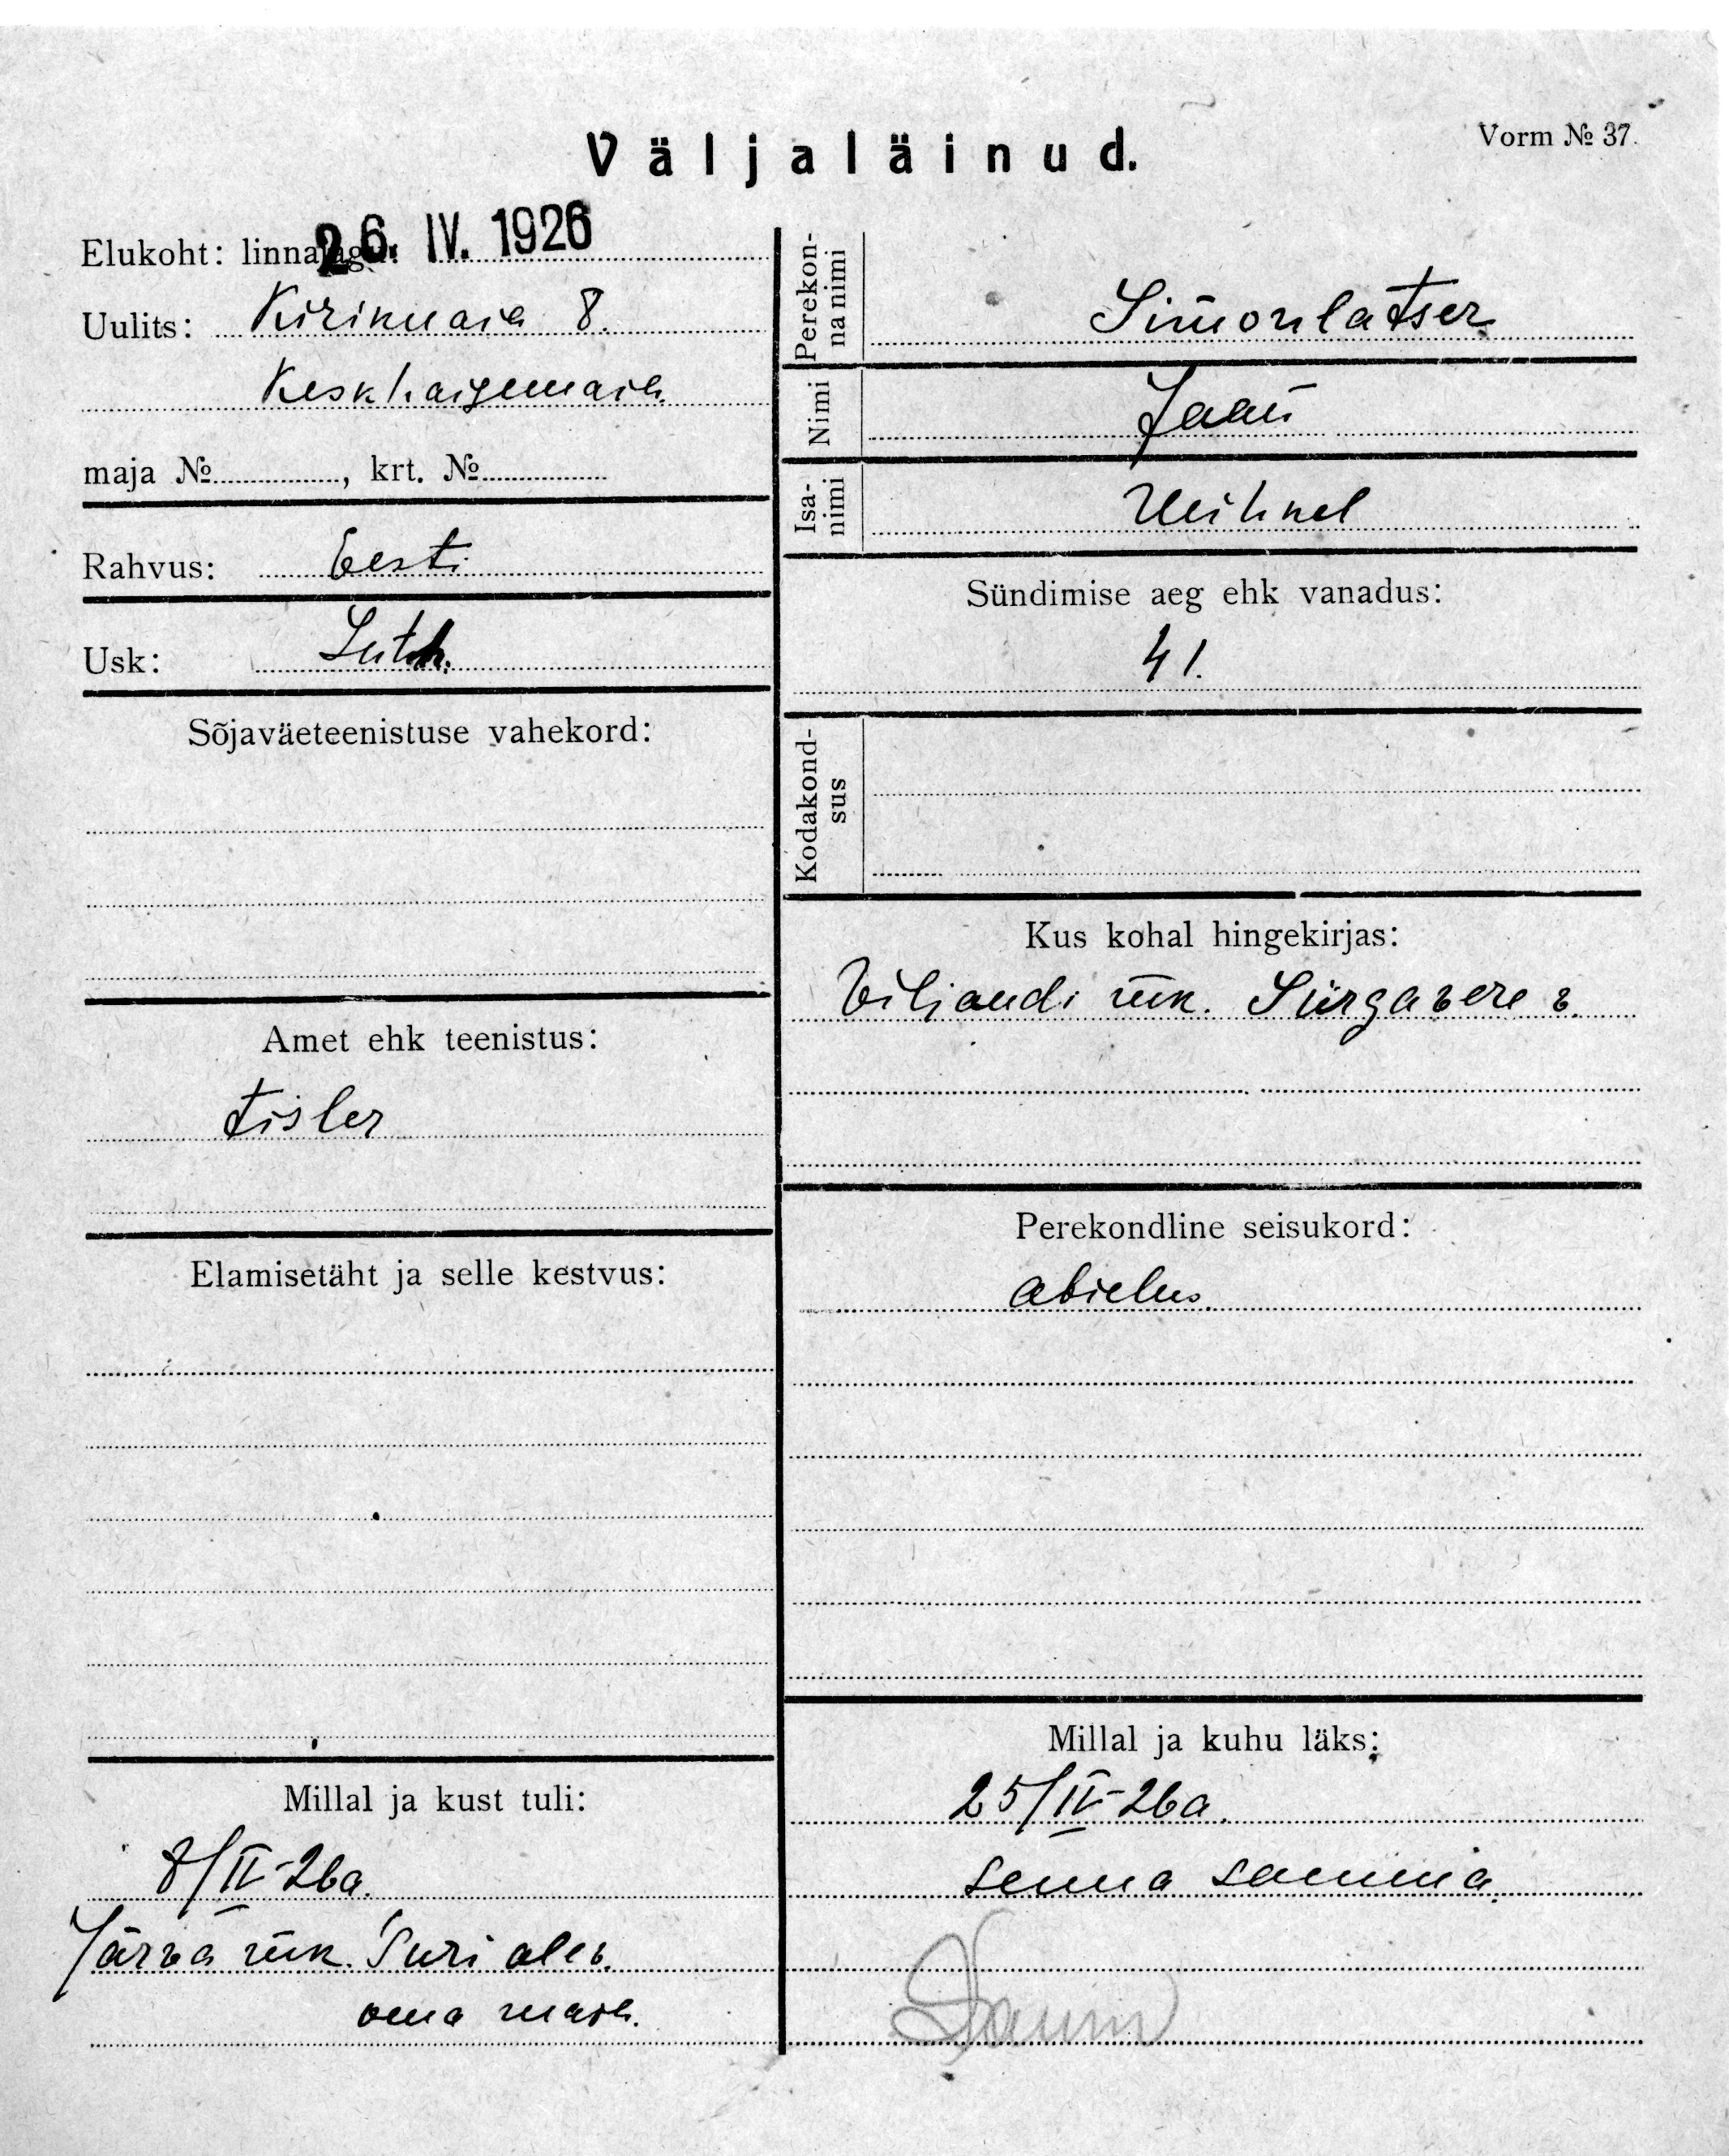 Vorm № 37.
Väljaläinud.
Elukoht: linnajagu:
26. IV. 1926
Uulits: Kirikuaia 8.
Keskhaigemaja.
maja № , krt. №
Rahvus: Eesti
Usk: Luth.
Sõjaväeteenistuse vahekord:
Amet ehk teenistus:
tisler
Elamisetäht ja selle kestvus:
Millal ja kust tuli:
8/IV-26a.
Järva mk. Türi alev.
oma maja.
Perekon-
na nimi
Simonlatser
Nimi
Jaan
Isa-
nimi
Mihkel
Sündimise aeg ehk vanadus:
41.
Kodakond-
sus
Kus kohal hingekirjas:
Viljandi mk. Sürgavere v.
Perekondline seisukord:
abielus.
Millal ja kuhu läks:
25/IV-26a.
senna samma.